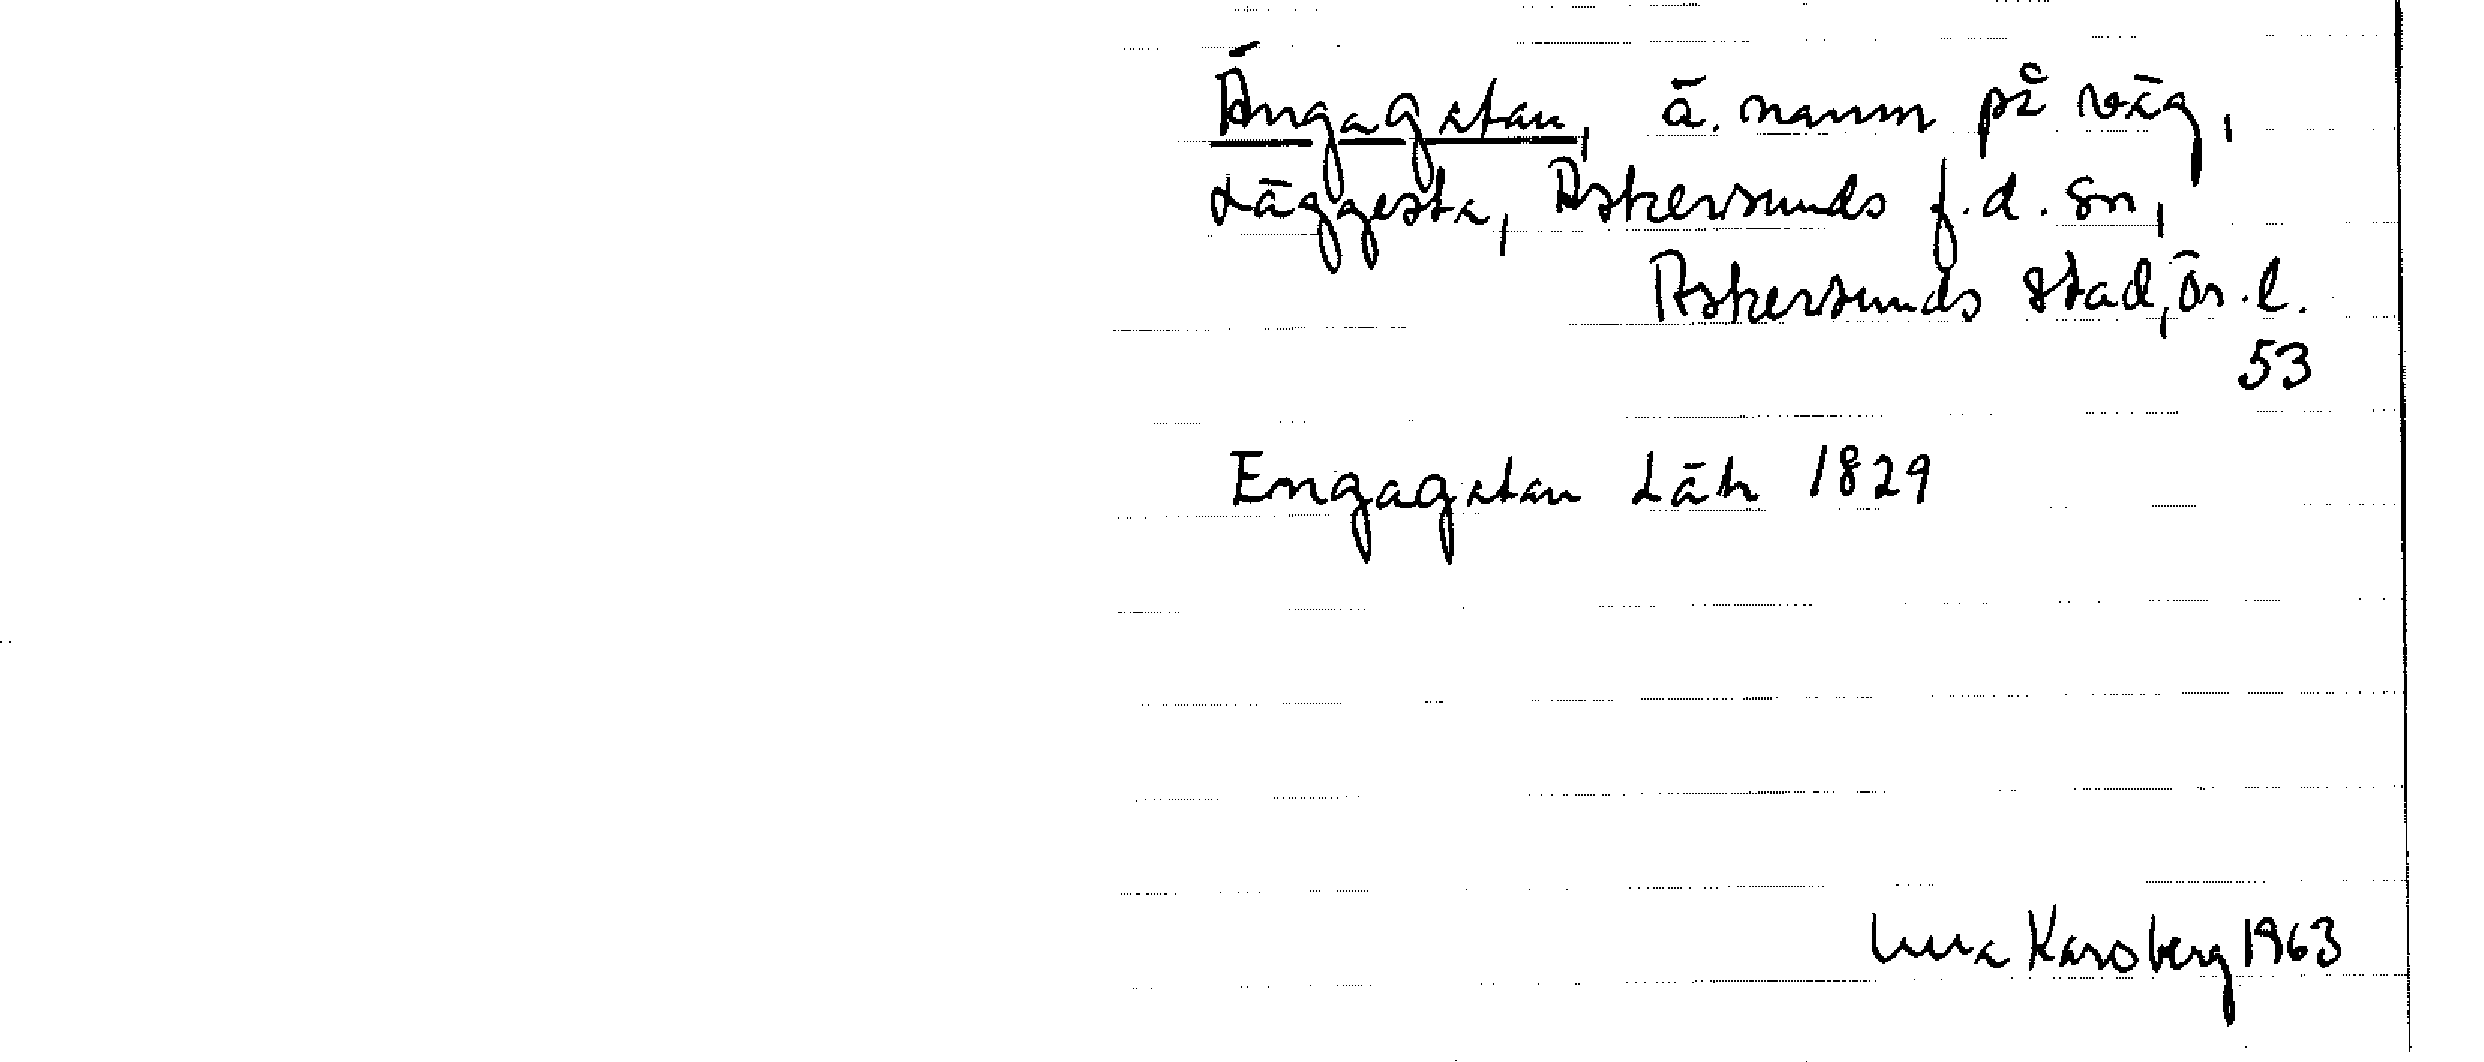 Ängagatan, ä. namn på väg,
Läggesta, Askersunds f.d. sn,
Askersunds stad, ör. l.
53
Engagatan Läh 1829
Karsberg 1963